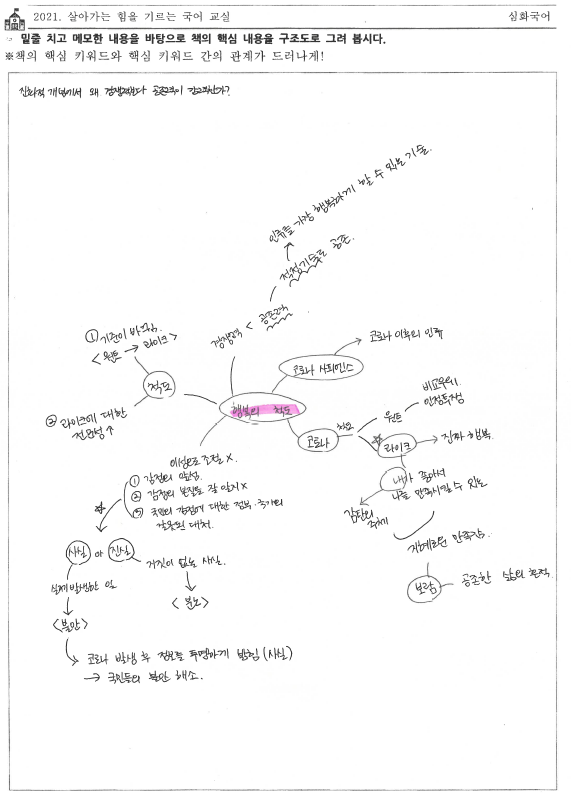 2021. 살아가는 힘을 기르는 국어 교실
심화국어
밑줄 치고 메모한 내용을 바탕으로 책의 핵심 내용을 구조도로 그려 봅시다.
※책의 핵심 키워드와 핵심 키워드 간의 관계가 드러나게!
진화적 개념에서 왜 경쟁력보다 공존력이 강조되는가?
인류를 가장 행복하게 할 수 있는 기술.
적정기술로 공존.
경쟁력 < 공존력
① 기준이 바뀌임.
< 원트 → 라이크 >
척도
② 라이크에 대한
전문성 ↑
행복의 척도
코로나 사피엔스
코로나 이후의 인류
코로나
척도
원트
비교우위.
인정투쟁
라이크
진짜 행복.
내가 좋아서
나를 만족시킬 수 있는
감탄의
주체
지혜로운 만족감.
보람
공존한 삶의 흔적.
이성으로 조절 X.
① 감정의 앞섬.
② 감정의 본질도 잘 알지 X
③ 국민의 감정에 대한 정부·국가의
잘못된 대처.
사실 or 진실
실제 발생한 일
<불안>
거짓이 없는 사실.
<분노>
코로나 발생 후 정보를 투명하게 밝힘 (사실)
→ 국민들의 불안 해소.